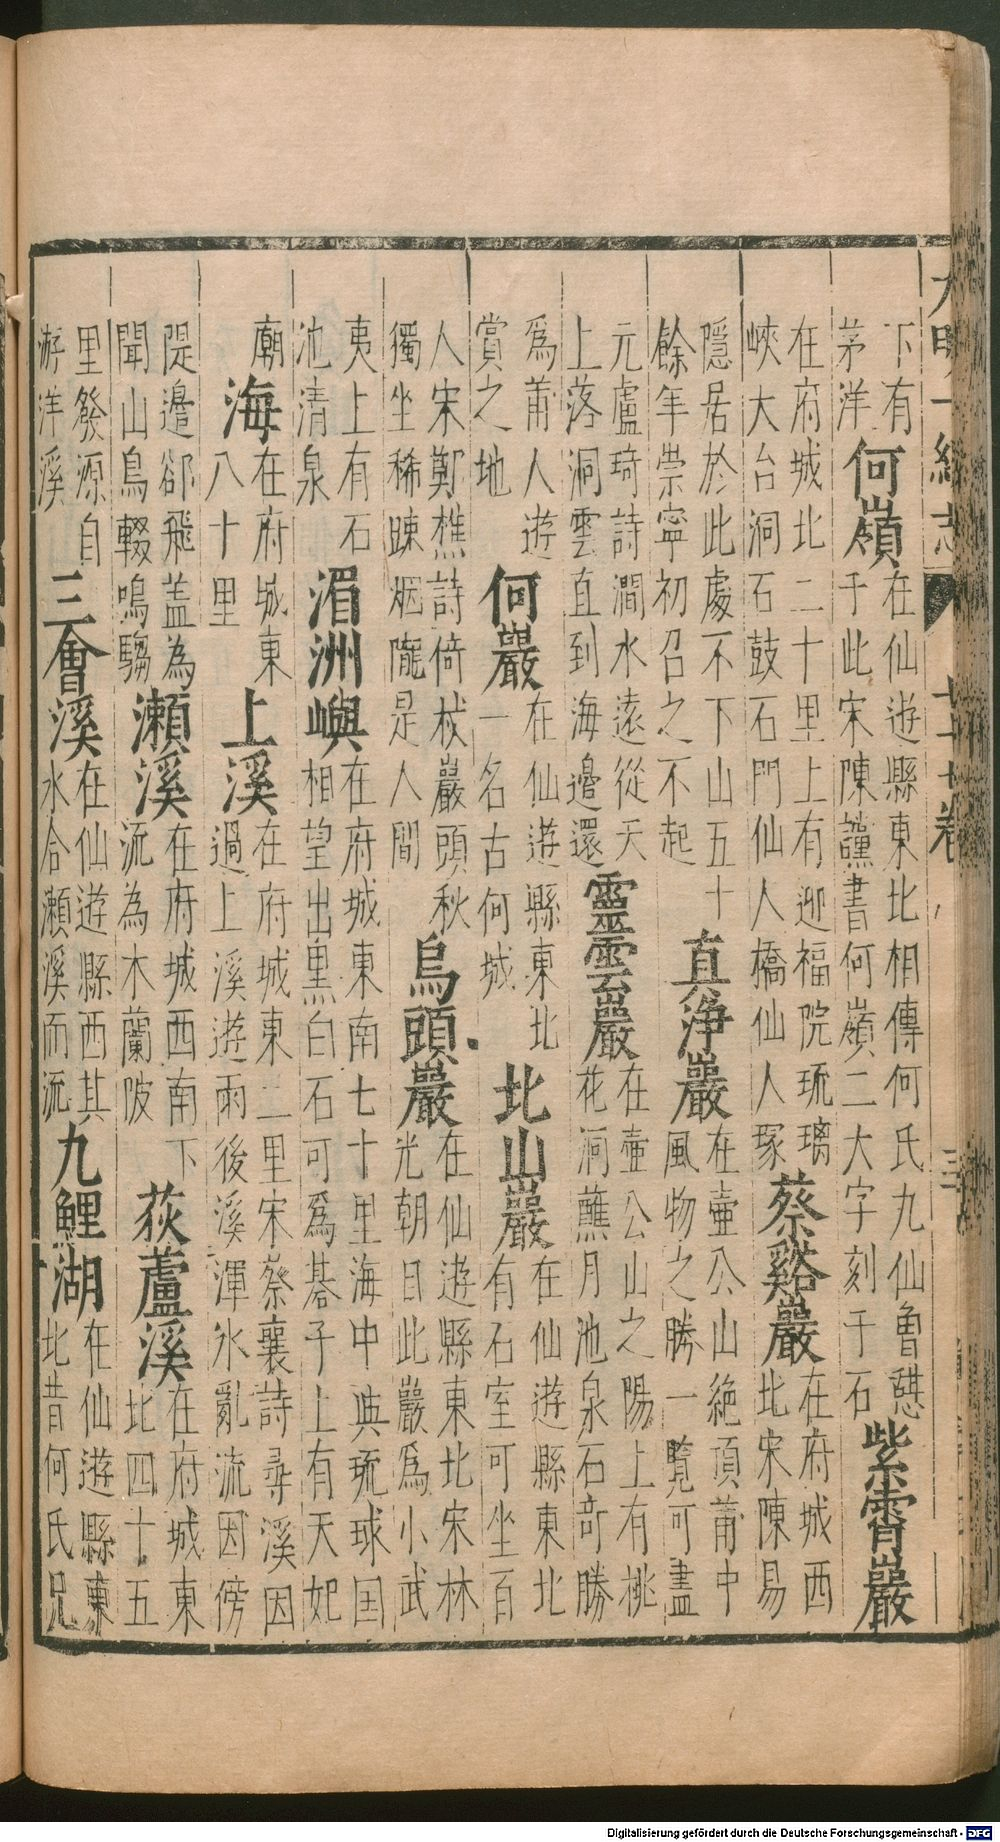 大明一統志 七十七卷
下有茅洋何嶺在仙遊縣東北相傳何氏九仙魯憇于此宋陳讜書何嶺二大字刻于石紫霄巖
在府城北二十里上有迎福院琉璃峽大台洞石鼓石門仙人橋仙人塚蔡谿巖在府城西北宋陳易
隱居於此處不下山五十餘年崇寧初召之不起真淨巖在壷公山絶頂莆中風物之勝一覽可盡
元盧琦詩澗水遠從天上落洞雲直到海邉還靈雲巖在壷公山之陽上有桃花洞蘸月池泉石竒勝
為莆人遊賞之地何巖在仙遊縣東北一名古何城北山巖在仙遊縣東北有石室可坐百
人宋鄭樵詩倚杖巖頭秋獨坐稀踈烟隴是人間烏頭巖在仙遊縣東北宋林光朝目此巖爲小武
夷上有石池清泉湄洲嶼在府城東南七十里海中與琉球国相望出黒白石可爲碁子上有天妃
廟海在府城東八十里上溪在府城東二里宋蔡襄詩尋溪因過上溪遊雨後溪渾氷亂流因傍
隄邉郤飛蓋為聞山鳥輟鳴騶瀬溪在府城西南下流為木蘭陂荻蘆溪在府城東北四十五
里發源自游洋溪三會溪在仙遊縣西其水合瀬溪而流九鯉湖在仙遊縣東北昔何氏兄
Digitalisierung gefördert durch die Deutsche Forschungsgemeinschaft - DFG